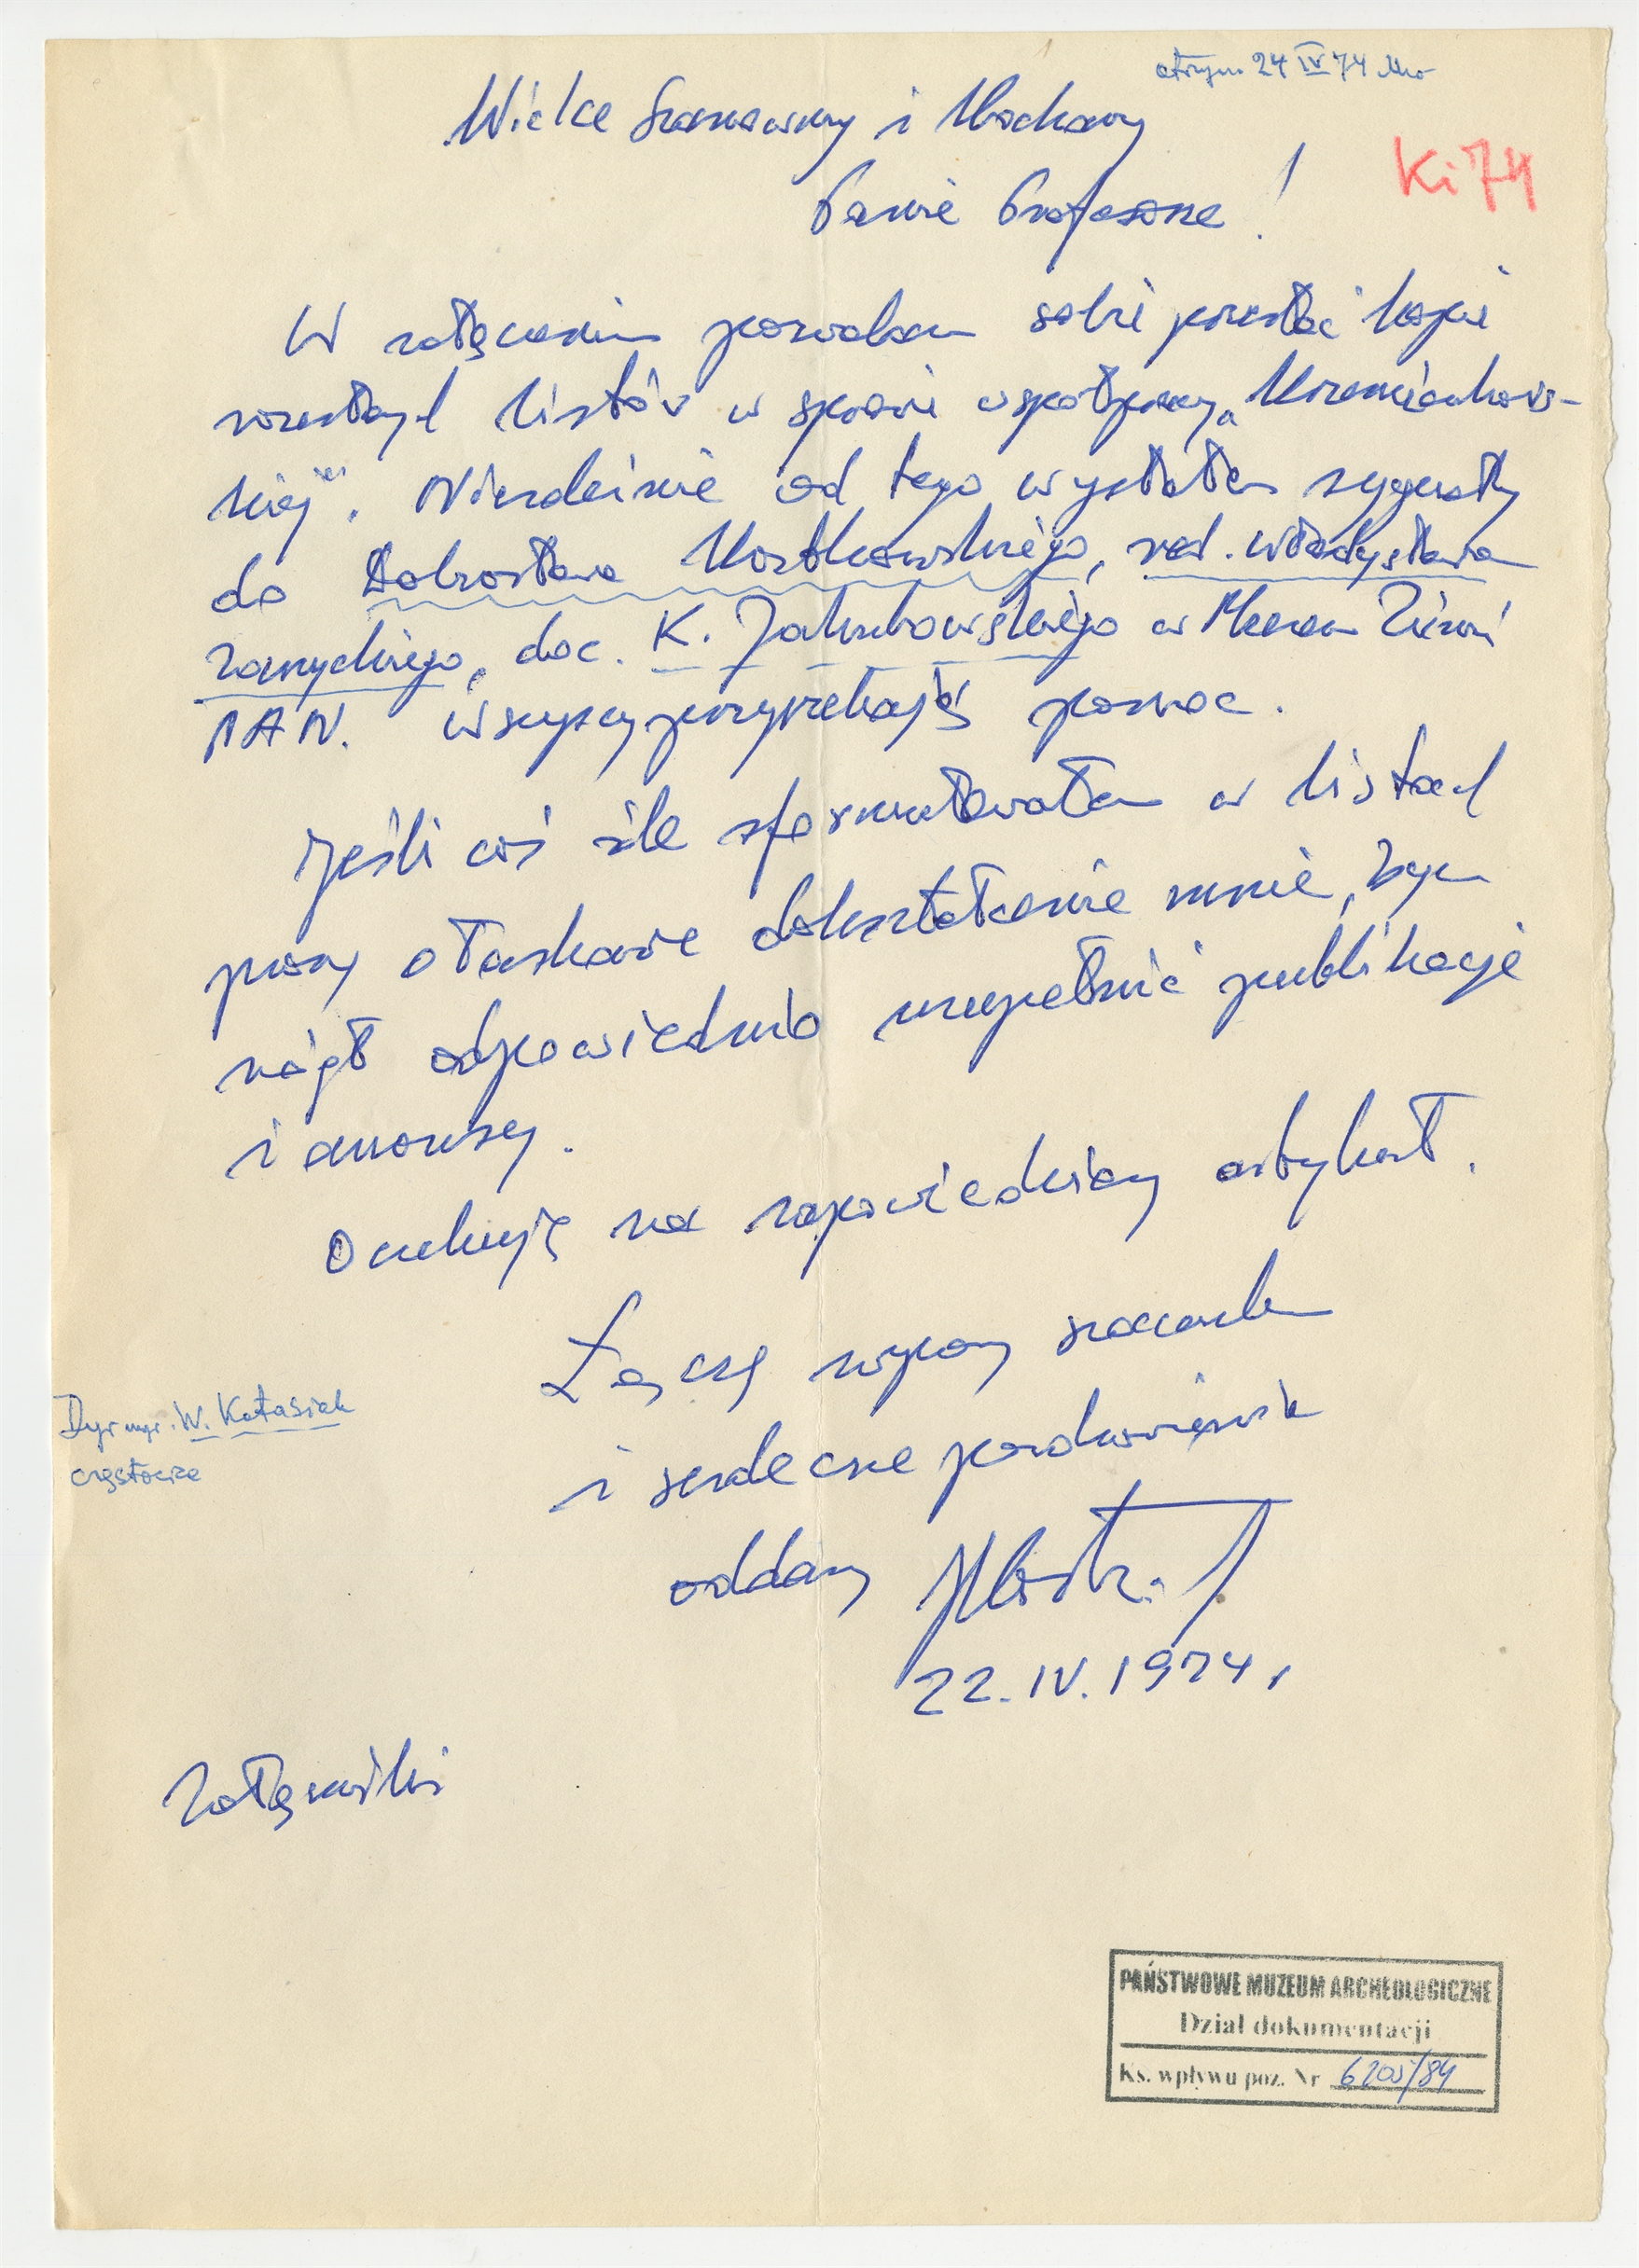 otrzym. 24 IV 74
Wielce Szanowny i Kochany
Ki 74
Panie Profesorze!
W załączeniu pozwalam sobie przesłać kopie
rozesłanych listów w sprawie współpracy „Krzemionkows-
kiej". Niezależnie od tego wysłałem sygnały
do Dobrosława Kostkowskiego, red. Władysława
Zamyckiego, doc. K. Jakubowskiego w Muzeum Ziemi
PAN. Wszyscy przyrzekają pomoc.
Jeśli coś źle sformułowałem w listach
proszę o łaskawe dokształcenie mnie, bym
mógł odpowiednio uzupełnić publikacje
i anonsy.
Oczekuję na zapowiedziany artykuł.
Łączę wyrazy szacunku
i serdeczne pozdrowienia
Dyr mgr. W. Kołasiak
Częstocice
oddany
22.IV.1974 r
Załączniki
PAŃSTWOWE MUZEUM ARCHEOLOGICZNE
Dział dokumentacji
Ks. wpływu poz. Nr 6205/84